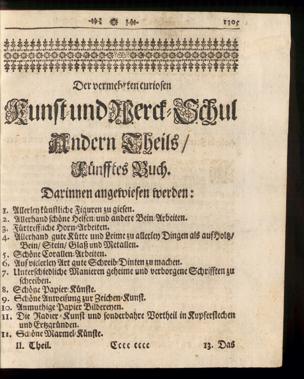 1305
Der vermehrten curiosen
Kunst und Werck-Schul
Andern Theils /
Fünfftes Buch.
Darinnen angewiesen werden:
1. Allerley künstliche Figuren zu giesen.
2. Allerhand schöne Helffen- und andere Bein-Arbeiten.
3. Fürtreffliche Horn-Arbeiten.
4. Allerhand gute Kütte und Leime zu allerley Dingen als auf Holtz /
Bein / Stein / Glaß und Metallen.
5. Schöne Corallen-Arbeiten.
6. Auf vielerley Art gute Schreib-Dinten zu machen.
7. Unterschiedliche Manieren geheime und verborgene Schrifften zu
schreiben.
8. Schöne Papier-Künste.
9. Schöne Anweisung zur Zeichen-Kunst.
10. Anmuthige Papier Bildereyen.
11. Die Radier-Kunst und sonderbahrer Vortheil in Kupferstechen
und Ertzgründen.
12. Schöne Marmel-Künste.
II. Theil. Cccc cccc 13. Das